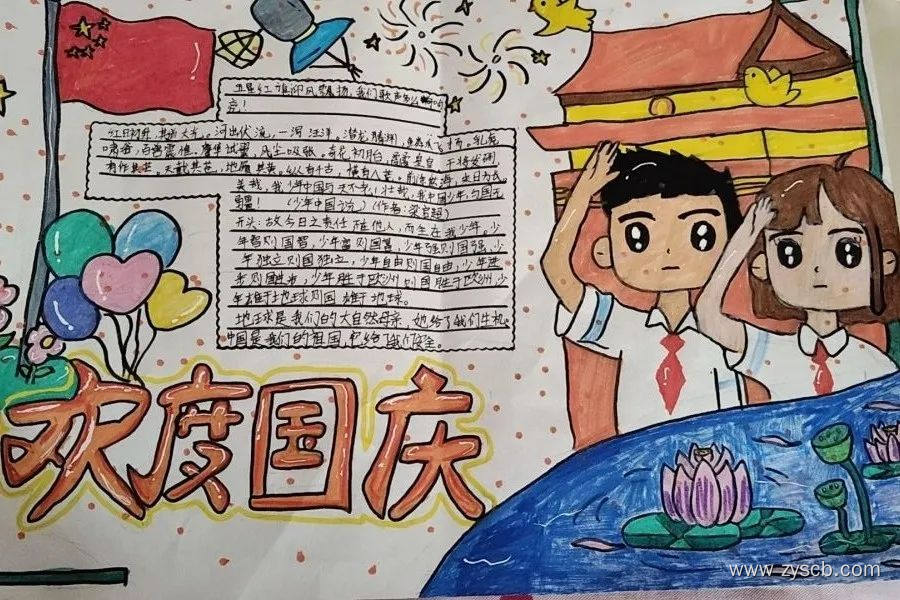 五星红旗迎风飘扬,我们歌声多么嘹
亮!
红日初升,其道大光。河出伏流,一泻汪洋。潜龙腾渊,鳞爪飞扬。乳虎
啸谷,百兽震惶。鹰隼试翼,风尘吸张。奇花初胎,矞矞皇皇。干将发硎,
有作其芒。天戴其苍,地履其黄。纵有千古,横有八荒。前途似海,来日方长。
美哉,我少年中国与天不老!壮哉,我中国少年,与国无
疆!(少年中国说)(作者:梁启超)
开头:故今日之责任,不在他人,而全在我少年。少
年智则国智,少年富则国富,少年强则国强,少
年独立则国独立,少年自由则国自由,少年进
步则国进步,少年胜于欧洲则国胜于欧洲,少
年雄于地球则国雄于地球。
地球是我们的大自然母亲,她给了我们生机。
中国是我们的祖国,它给了我们安全。
欢度国庆
www.zyscb.com